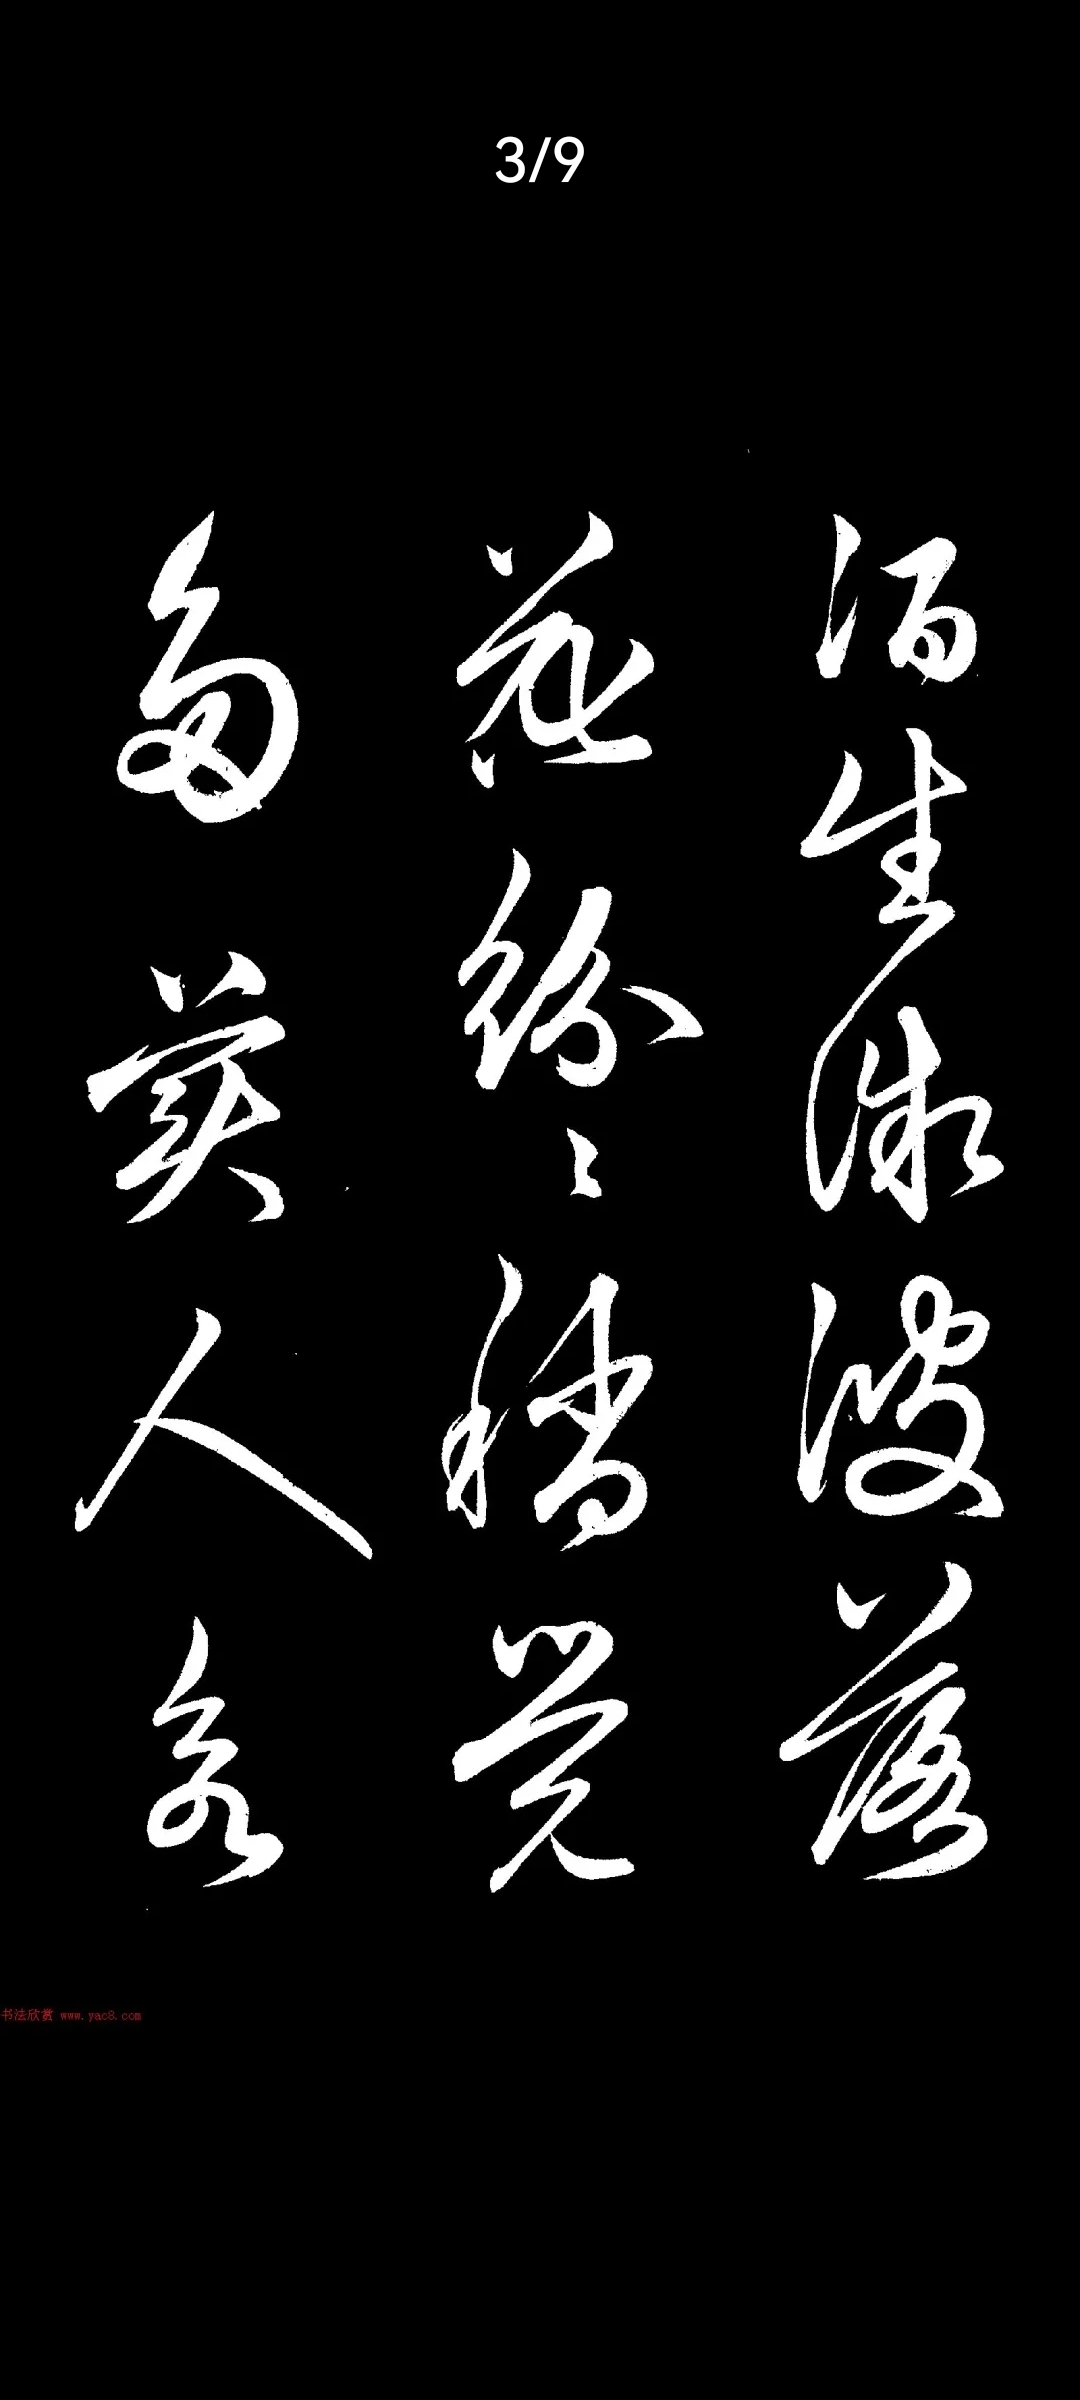 3/9
酒生微波落
花紛々稍覺
多美人欲
书法欣赏 www.yac8.com